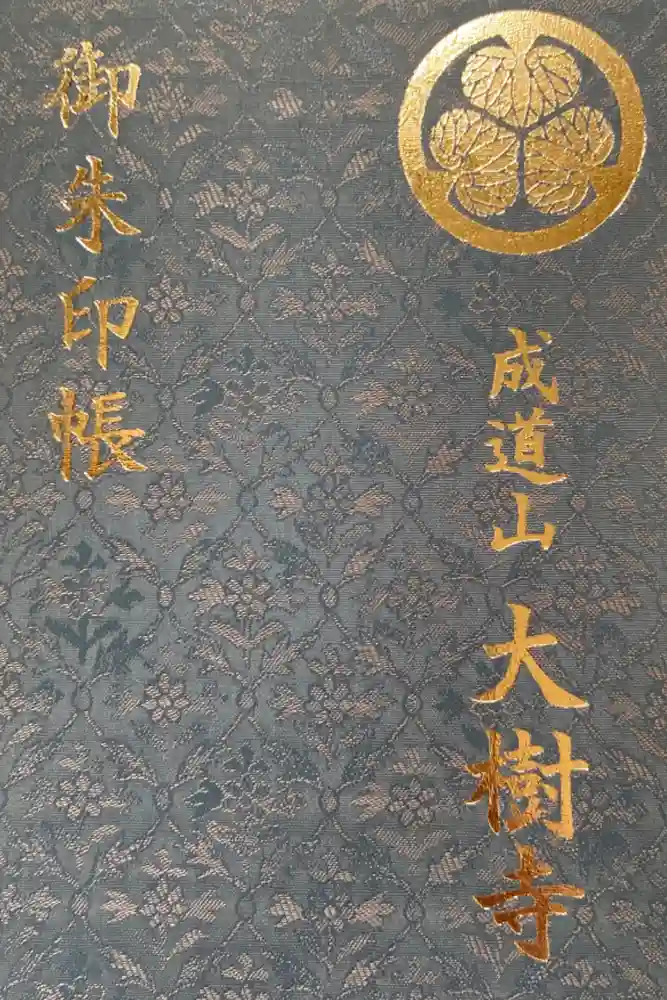 成道山 大樹寺
御朱印帳